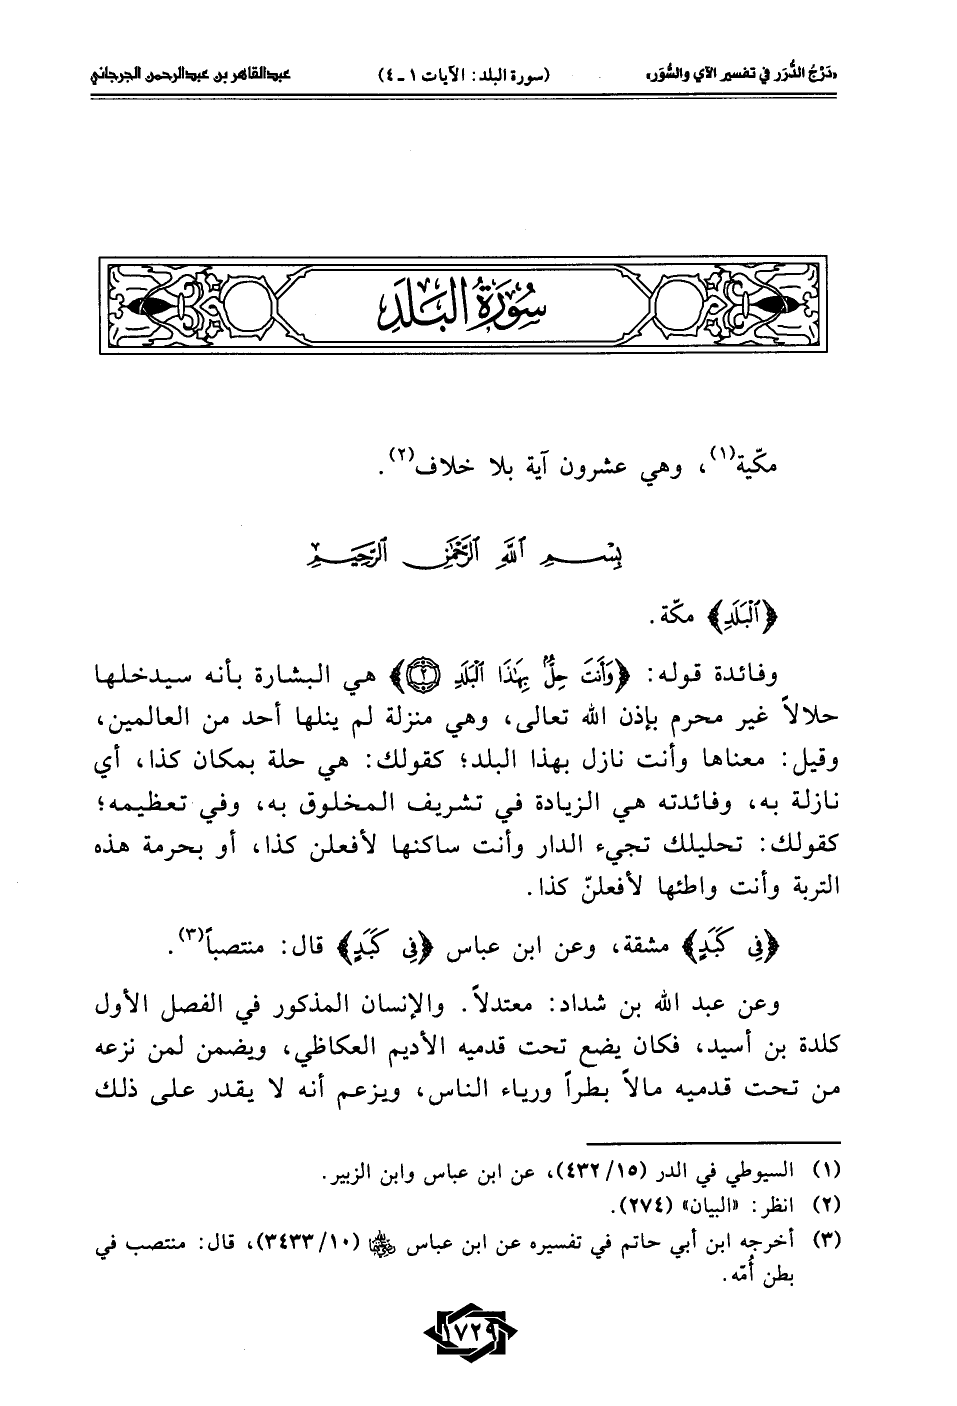 «دَرْجُ الدُّرَر في تفسير الآي والسُّوَر» (سورة البلد: الآيات ١ ـ ٤) عبدالقاهر بن عبدالرحمن الجرجاني
سُورَةُ الْبَلَدِ
مكّية(١)، وهي عشرون آية بلا خلاف(٢).
بِسْمِ ٱللَّهِ ٱلرَّحْمَٰنِ ٱلرَّحِيمِ
﴿ٱلْبَلَدِ﴾ مكّة.
وفائدة قوله: ﴿وَأَنتَ حِلٌّۢ بِهَٰذَا ٱلْبَلَدِ ٢﴾ هي البشارة بأنه سيدخلها
حلالاً غير محرم بإذن الله تعالى، وهي منزلة لم ينلها أحد من العالمين،
وقيل: معناها وأنت نازل بهذا البلد؛ كقولك: هي حلة بمكان كذا، أي
نازلة به، وفائدته هي الزيادة في تشريف المخلوق به، وفي تعظيمه؛
كقولك: تحليلك تجيء الدار وأنت ساكنها لأفعلن كذا، أو بحرمة هذه
التربة وأنت واطئها لأفعلنّ كذا.
﴿فِي كَبَدٍ﴾ مشقة، وعن ابن عباس ﴿فِي كَبَدٍ﴾ قال: منتصباً(٣).
وعن عبد الله بن شداد: معتدلاً. والإنسان المذكور في الفصل الأول
كلدة بن أسيد، فكان يضع تحت قدميه الأديم العكاظي، ويضمن لمن نزعه
من تحت قدميه مالاً بطراً ورياء الناس، ويزعم أنه لا يقدر على ذلك
(١) السيوطي في الدر (٤٣٢/١٥)، عن ابن عباس وابن الزبير.
(٢) انظر: «البيان» (٢٧٤).
(٣) أخرجه ابن أبي حاتم في تفسيره عن ابن عباس رضي الله عنهما (٣٤٣٣/١٠)، قال: منتصب في
بطن أُمّه.
١٧٢٩